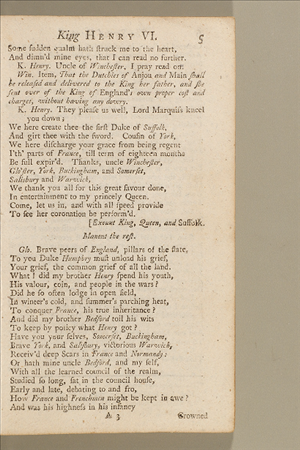 King HENRY VI. 5
Some sudden qualm hath struck me to the heart,
And dimm'd mine eyes, that I can read no further.
K. Henry. Uncle of Winchester, I pray read on.
Win. Item, That the Dutchies of Anjou and Main shall
be released and delivered to the King her father, and she
sent over of the King of England's own proper cost and
charges, without having any dowry.
K. Henry. They please us well. Lord Marquiss kneel
you down;
We here create thee the first Duke of Suffolk,
And girt thee with the sword. Cousin of York,
We here discharge your grace from being regent
I'th' parts of France, till term of eighteen months
Be full expir'd. Thanks, uncle Winchester,
Glo'ster, York, Buckingham, and Somerset,
Salisbury and Warwick,
We thank you all for this great favour done,
In entertainment to my princely Queen.
Come, let us in, and with all speed provide
To see her coronation be perform'd.
[Exeunt King, Queen, and Suffolk.
Manent the rest.
Glo. Brave peers of England, pillars of the state,
To you Duke Humphry must unload his grief,
Your grief, the common grief of all the land.
What! did my brother Henry spend his youth,
His valour, coin, and people in the wars?
Did he so often lodge in open field,
In winter's cold, and summer's parching heat,
To conquer France, his true inheritance?
And did my brother Bedford toil his wits
To keep by policy what Henry got?
Have you your selves, Somerset, Buckingham,
Brave York, and Salisbury, victorious Warwick,
Receiv'd deep Scars in France and Normandy:
Or hath mine uncle Bedford, and my self,
With all the learned council of the realm,
Studied so long, sat in the council house,
Early and late, debating to and fro,
How France and Frenchmen might be kept in awe?
And was his highness in his infancy
A 3 Crowned